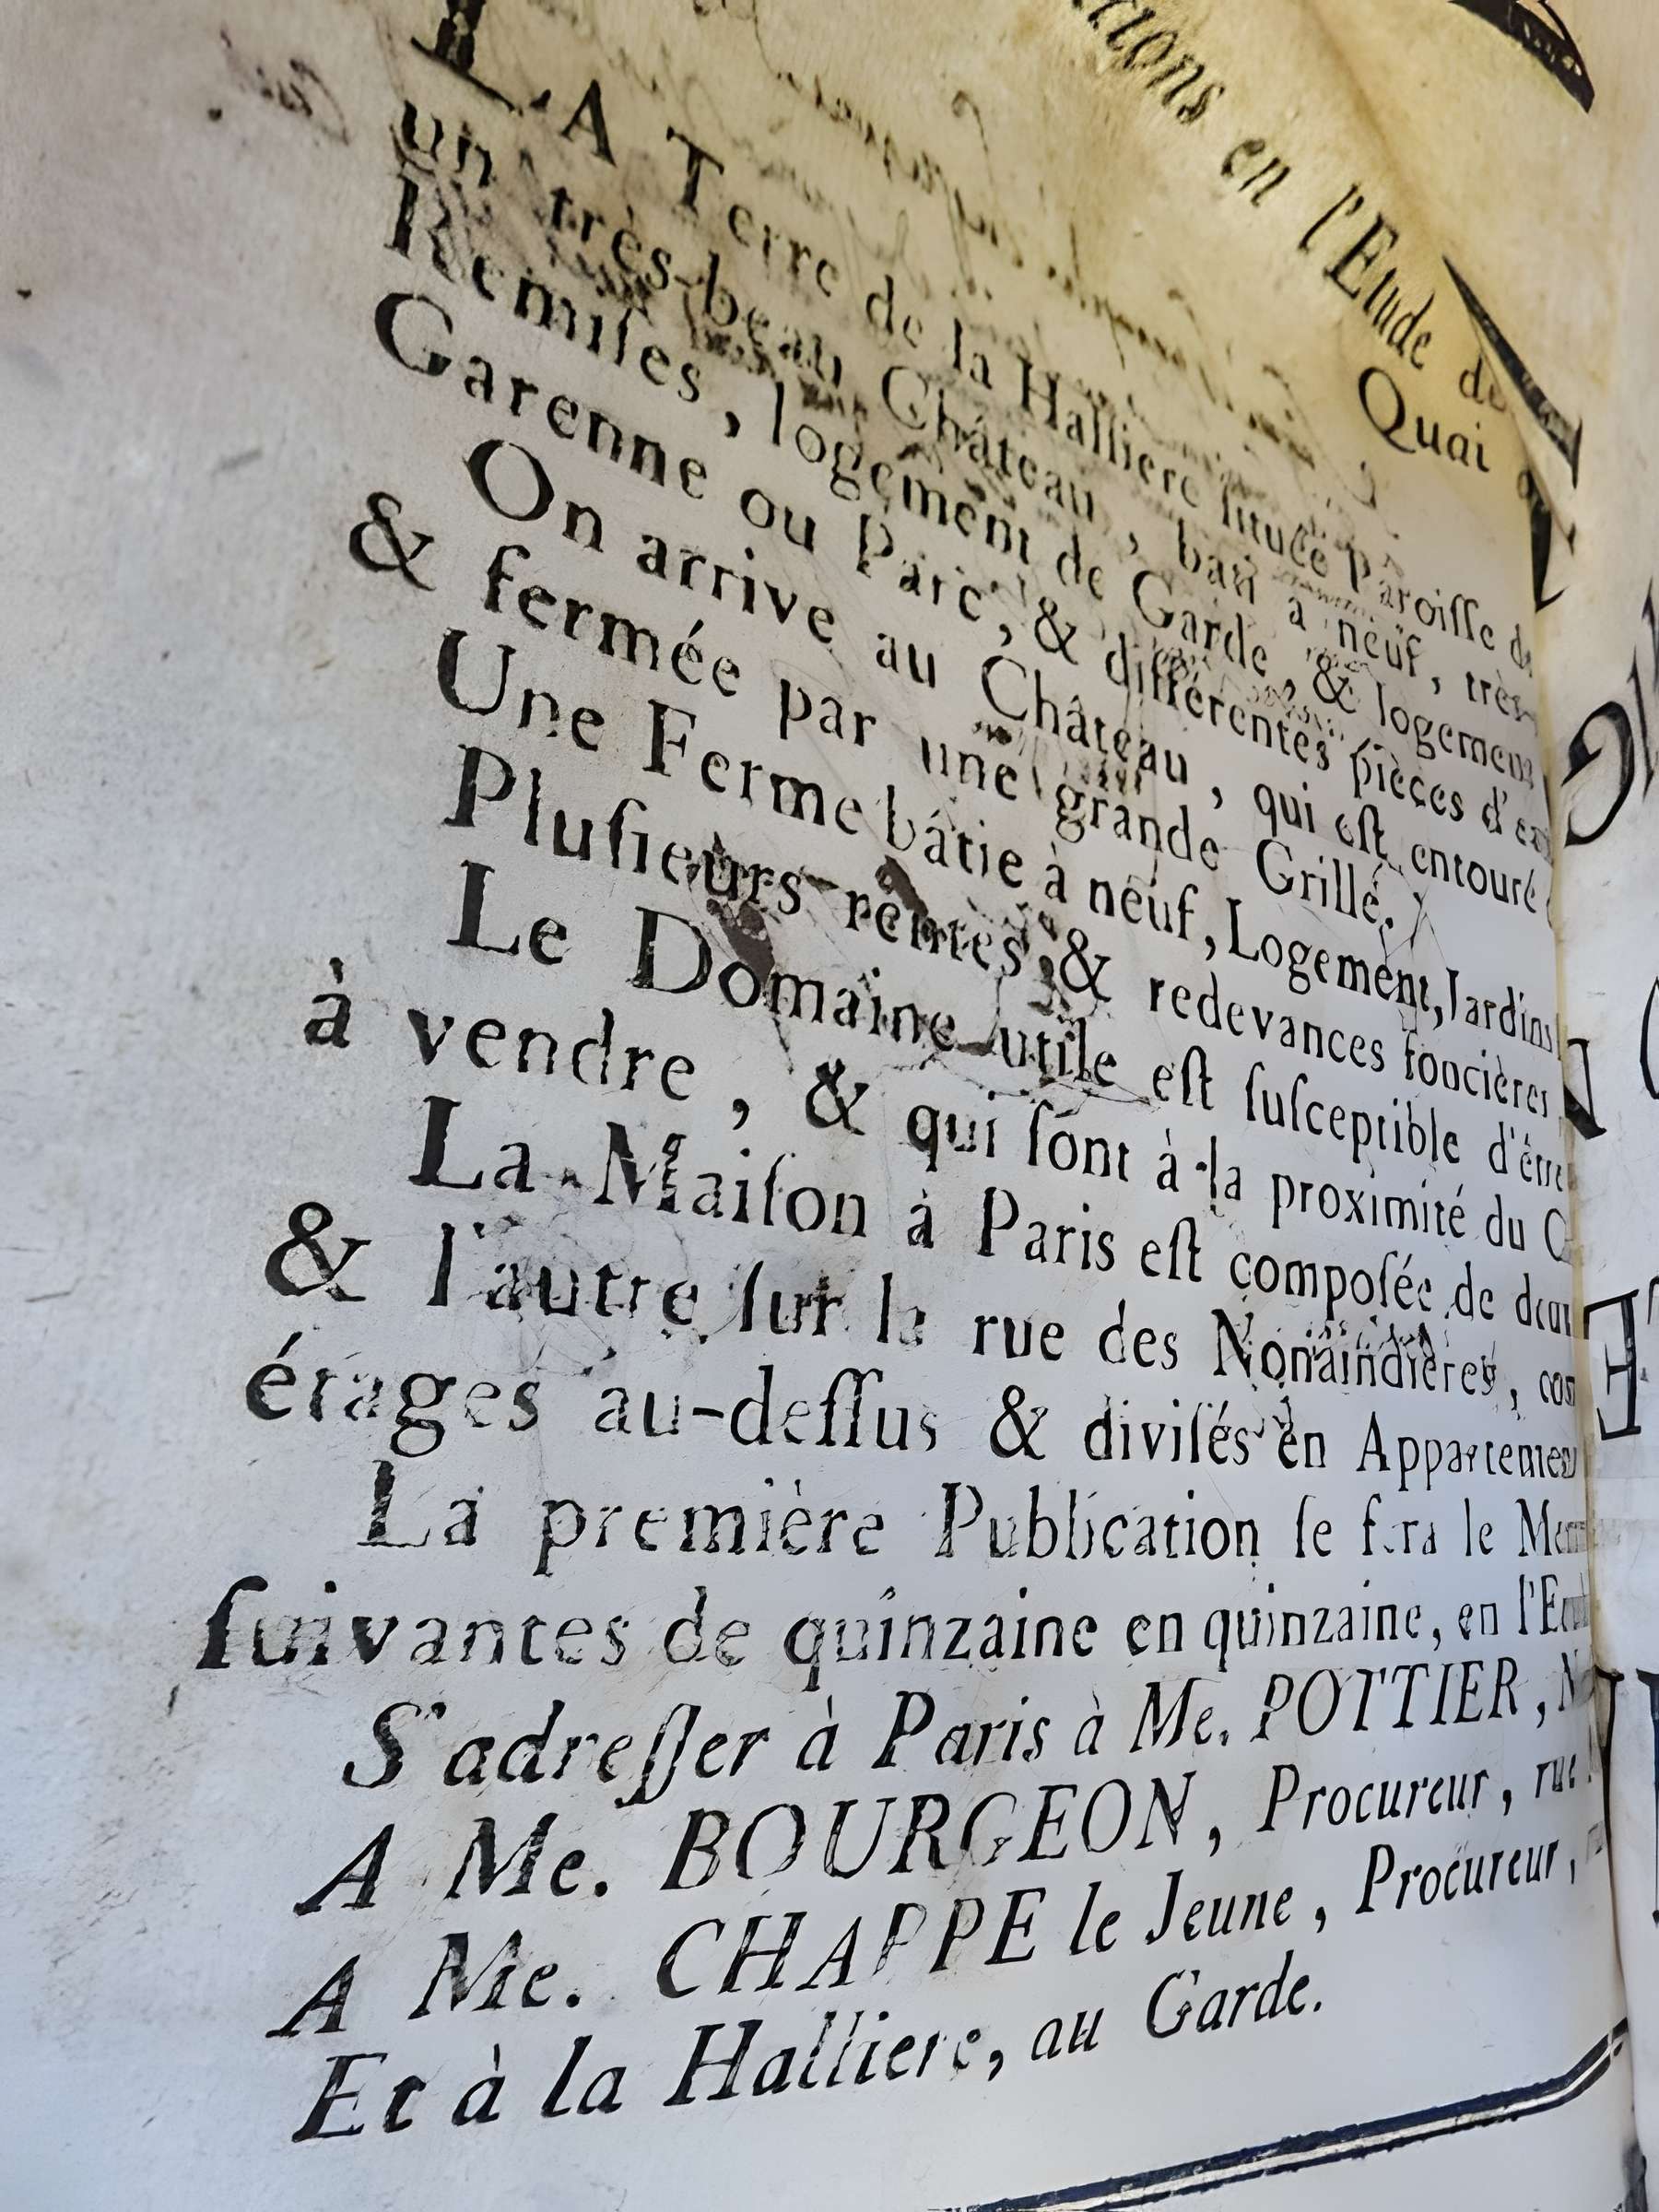 en l'Etude
Quai
LA Terre de la Halliere ſituée Paroiſſe
un très-beau Château, bati à neuf, très
Remiſes, logement de Garde, & logement
Garenne ou Parc, & différentes pièces d'
On arrive au Château, qui eſt entouré
& fermée par une grande Grille.
Une Ferme bâtie à neuf, Logement, Jardins
Pluſieurs rentes & redevances foncières
Le Domaine utile eſt ſuſceptible d'être
à vendre, & qui ſont à la proximité du
La Maiſon à Paris eſt compoſée de
& l'autre ſur la rue des Nonaindières,
étages au-deſſus & diviſés en
La première Publication ſe fera le
ſuivantes de quinzaine en quinzaine, en
S'adreſſer à Paris à Me. POTTIER,
A Me. BOURGEON, Procureur, rue
A Me. CHAPPE le Jeune, Procureur,
Et à la Halliere, au Garde.